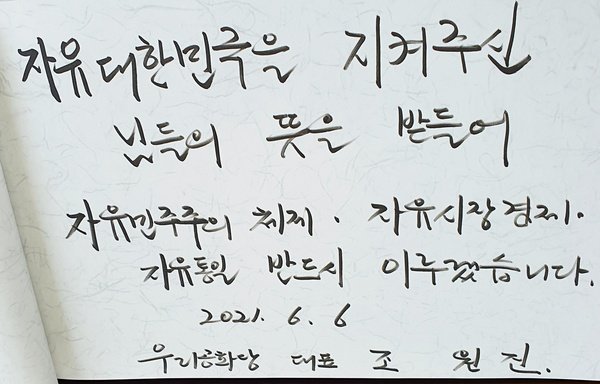 자유대한민국을 지켜주신
님들의 뜻을 받들어
자유민주주의 체제. 자유시장경제.
자유통일 반드시 이루겠습니다.
2021. 6. 6
우리공화당 대표 조 원 진.